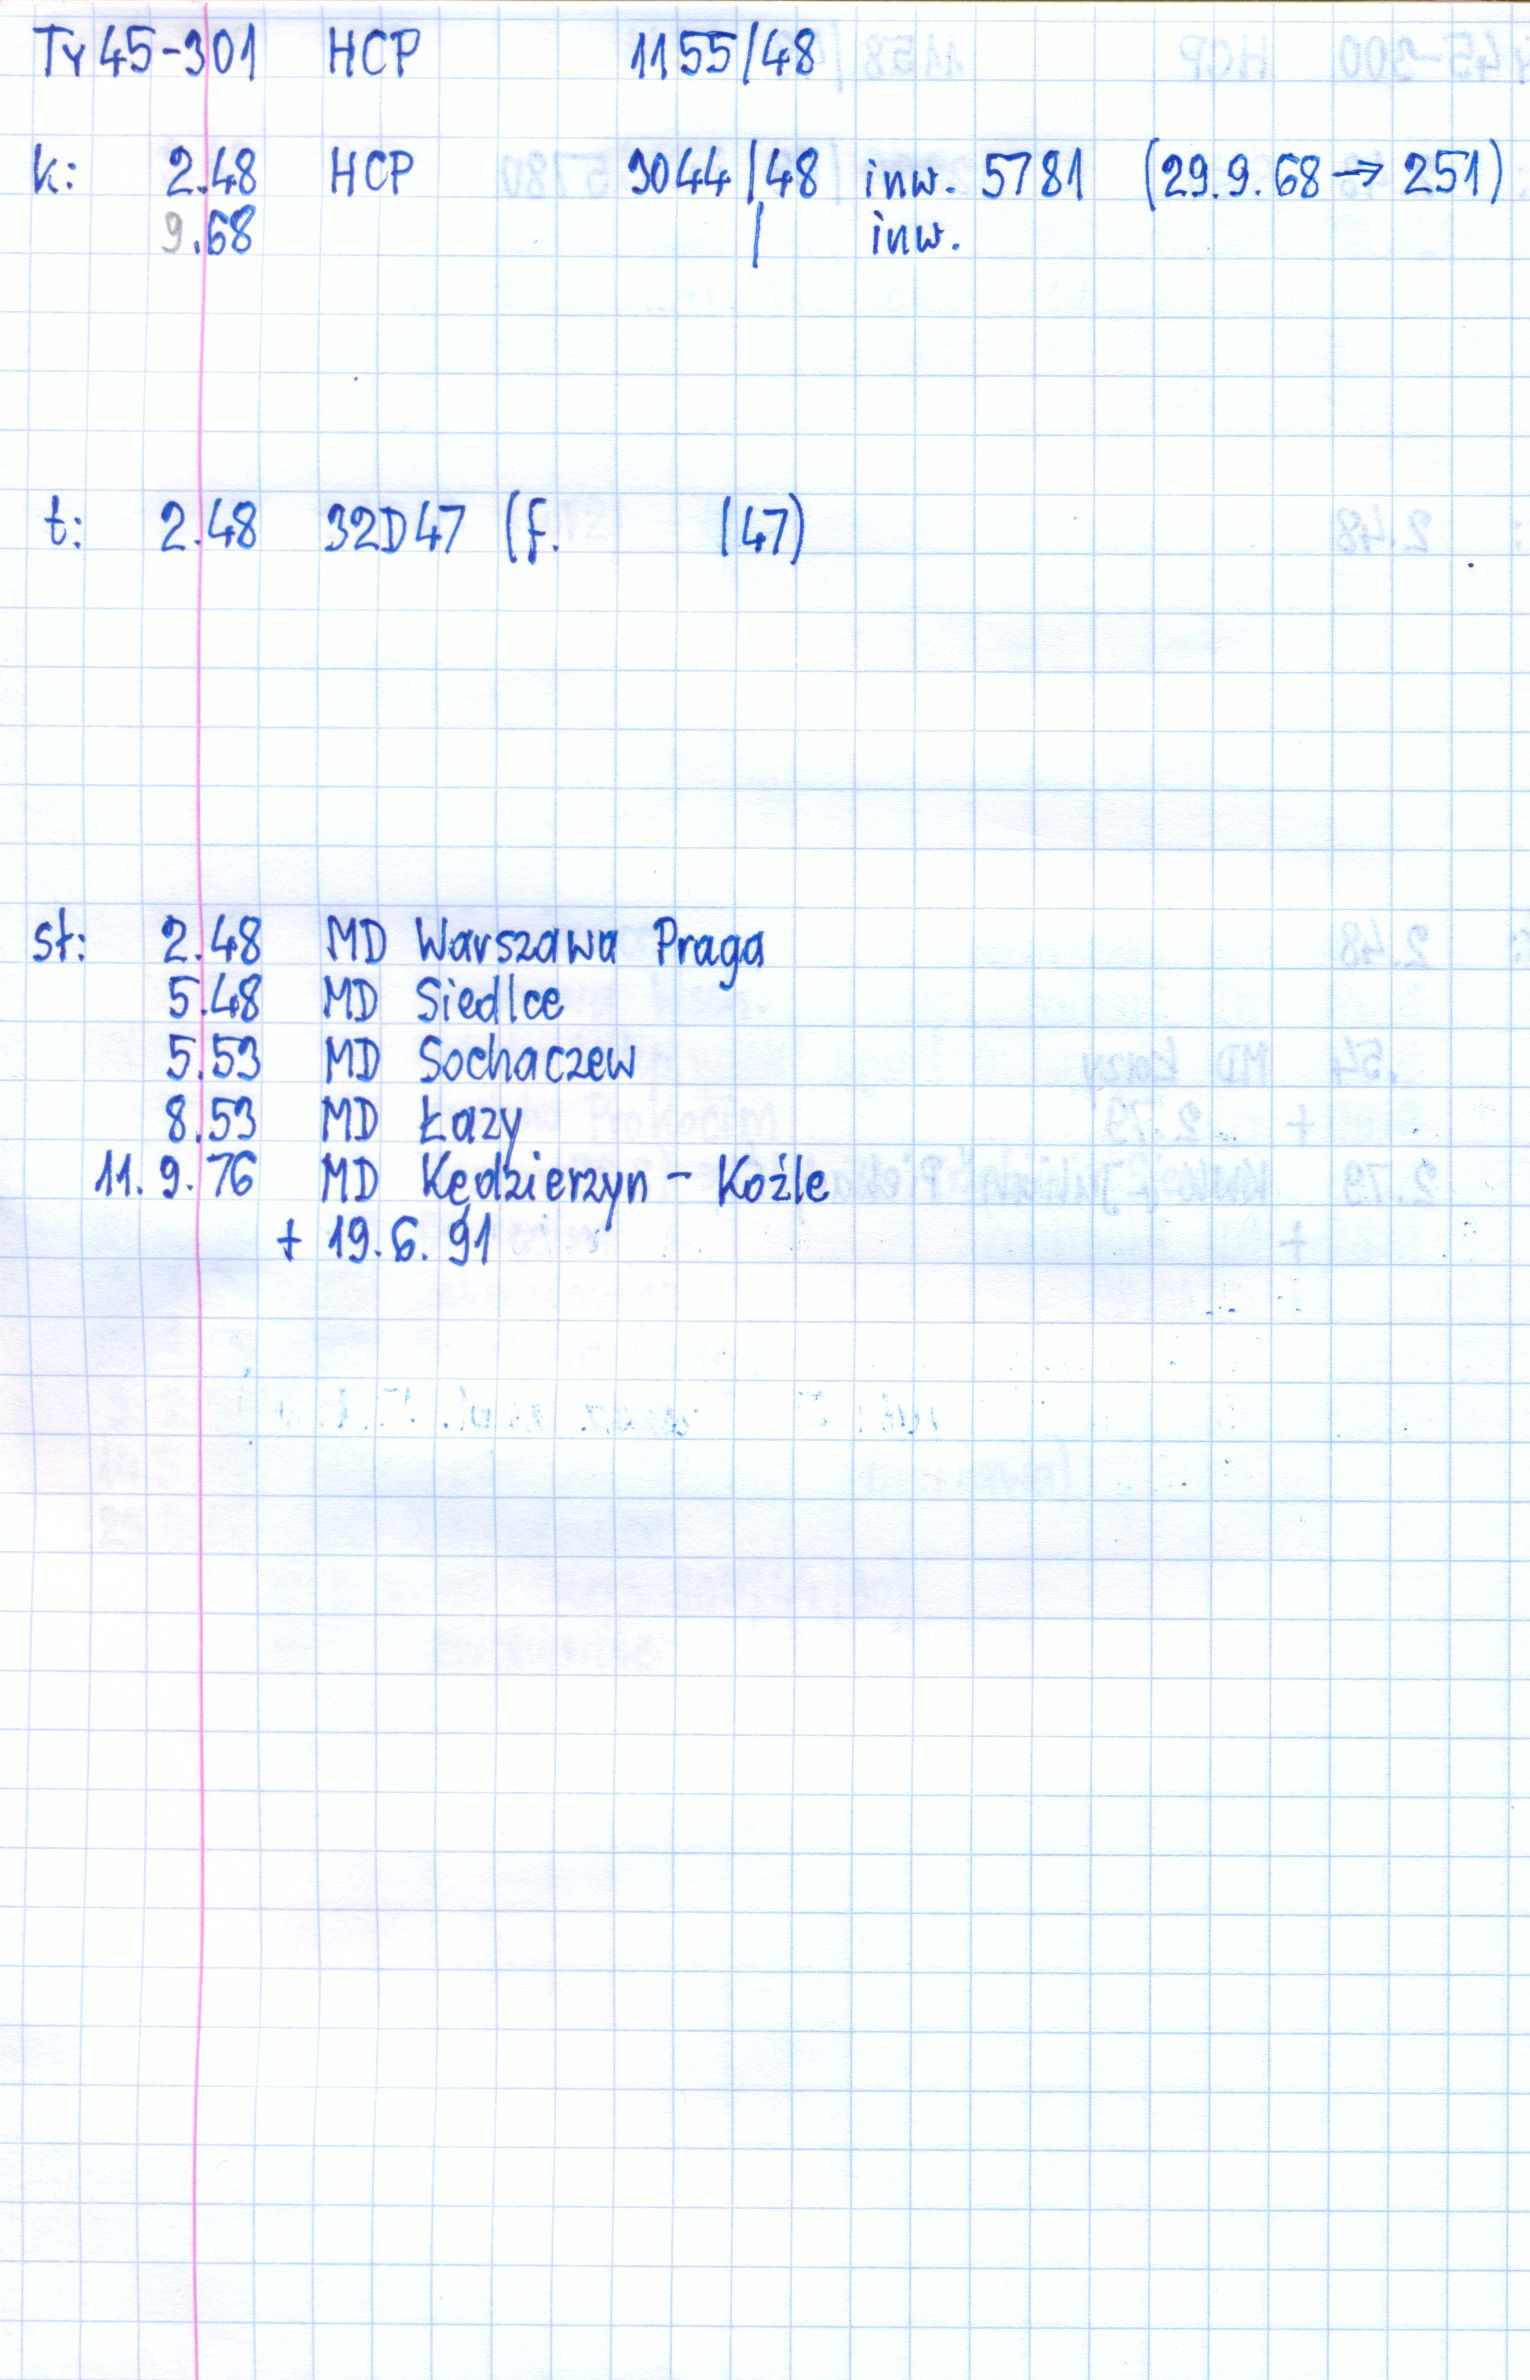 Ty45-301 HCP 1155/48
k: 2.48 HCP 3044/48 inw. 5781 (29.9.68 → 251)
9.68 / inw.
t: 2.48 32D47 (f. /47)
st: 2.48 MD Warszawa Praga
5.48 MD Siedlce
5.53 MD Sochaczew
8.53 MD Łazy
11.9.76 MD Kędzierzyn - Koźle
+ 19.6.91